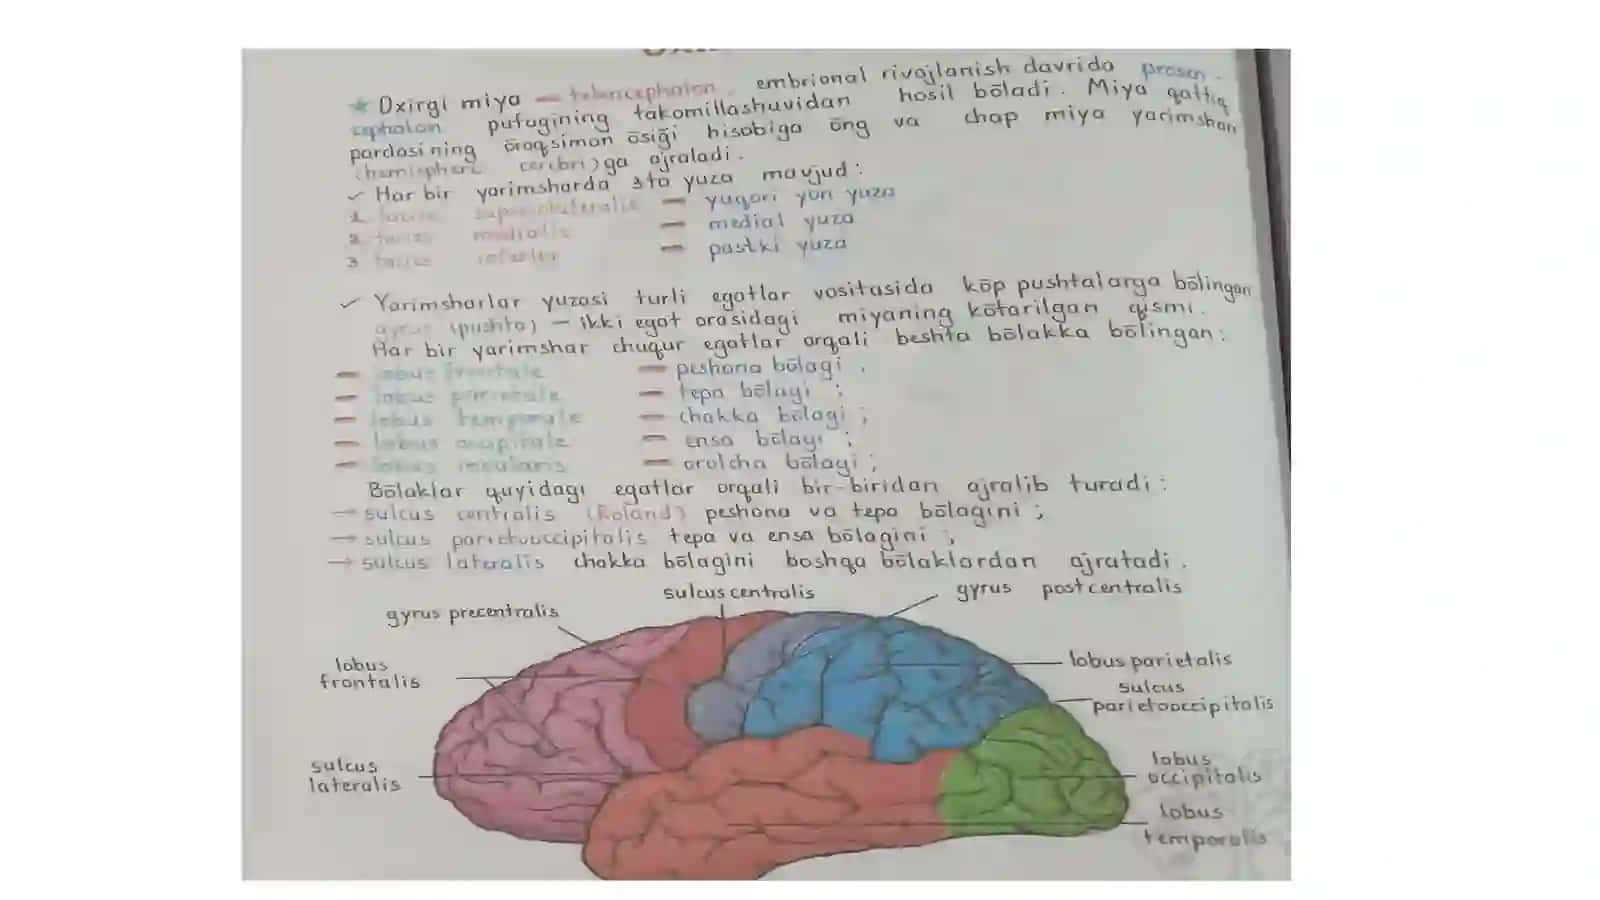 ★ Oxirgi miya — telencephalon, embrional rivojlanish davrida prosen-
cephalon pufagining takomillashuvidan hosil bōladi. Miya qattiq
pardasining ōroqsimon ōsiği hisobiga ōng va chap miya yarimshar
(hemispheri cerebri) ga ajraladi.
✓ Har bir yarimsharda 3ta yuza mavjud:
1. facies superolateralis — yuqori yon yuza
2. facies medialis — medial yuza
3. facies inferior — pastki yuza
✓ Yarimsharlar yuzasi turli egatlar vositasida kōp pushtalarga bōlingan
gyrus (pushta) — ikki egat orasidagi miyaning kōtarilgan qismi.
Har bir yarimshar chuqur egatlar orqali beshta bōlakka bōlingan:
— lobus frontale — peshona bōlagi ;
— lobus parietale — tepa bōlagi ;
— lobus temporale — chakka bōlagi ;
— lobus occipitale — ensa bōlagi ;
— lobus insularis — orolcha bōlagi ;
Bōlaklar quyidagi egatlar orqali bir-biridan ajralib turadi:
→ sulcus centralis (Roland) peshona va tepa bōlagini ;
→ sulcus parietooccipitalis tepa va ensa bōlagini ;
→ sulcus lateralis chakka bōlagini boshqa bōlaklardan ajratadi.
sulcus centralis
gyrus postcentralis
gyrus precentralis
lobus
frontalis
lobus parietalis
sulcus
parietooccipitalis
sulcus
lateralis
lobus
occipitalis
lobus
temporalis